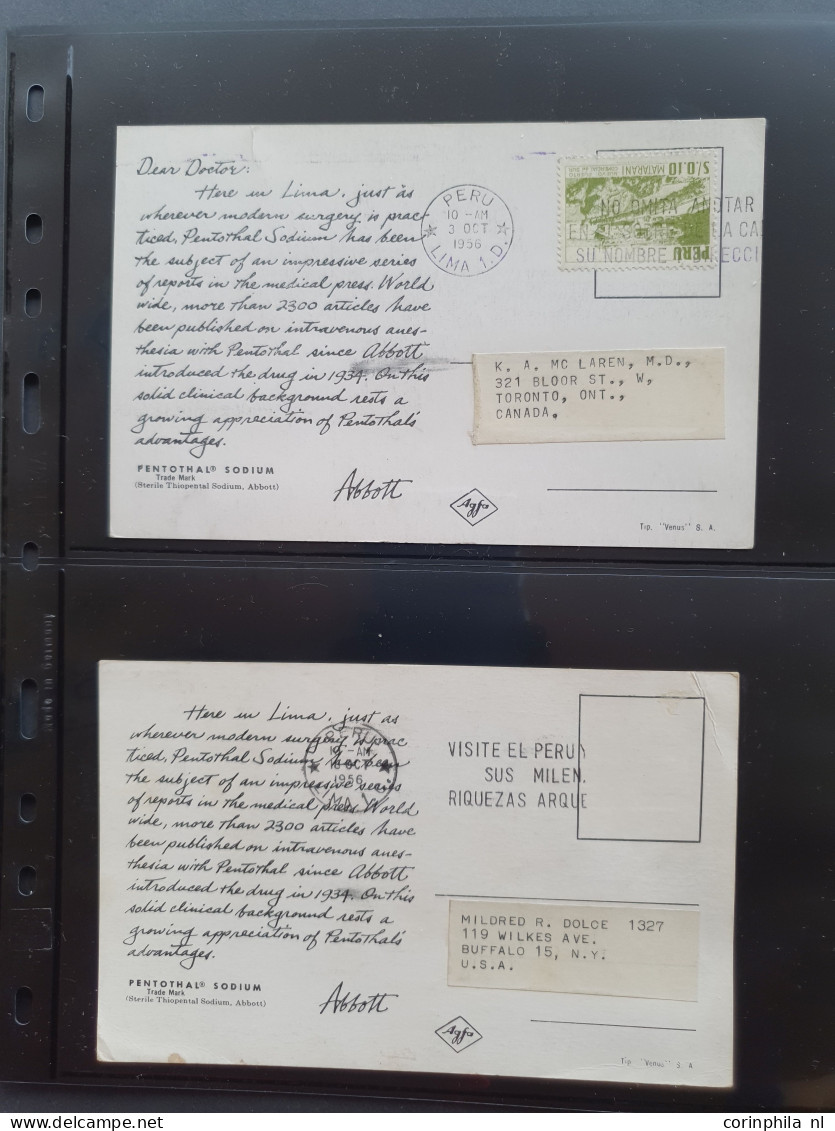 Dear Doctor:
Here in Lima, just as
wherever modern surgery is prac-
ticed, Pentothal Sodium has been
the subject of an impressive series
of reports in the medical press. World
wide, more than 2300 articles have
been published on intravenous anes-
thesia with Pentothal since Abbott
introduced the drug in 1934. On this
solid clinical background rests a
growing appreciation of Pentothal's
advantages.
PENTOTHAL® SODIUM
Trade Mark
(Sterile Thiopental Sodium, Abbott)
Abbott
Agfa
PERU
10 -AM
3 OCT
1956
LIMA 1.D.
S/0.10
MATARANI
PERU
NO OMITA ANOTAR
EN EL SOBRE DE LA CA
SU NOMBRE Y DIRECCI
K. A. MC LAREN, M.D.,
321 BLOOR ST., W,
TORONTO, ONT.,
CANADA,
Tip. "Venus" S. A.
Here in Lima, just as
wherever modern surgery is prac
ticed, Pentothal Sodium has been
the subject of an impressive series
of reports in the medical press. World
wide, more than 2300 articles have
been published on intravenous anes-
thesia with Pentothal since Abbott
introduced the drug in 1934. On this
solid clinical background rests a
growing appreciation of Pentothal's
advantages.
PENTOTHAL® SODIUM
Trade Mark
(Sterile Thiopental Sodium, Abbott)
Abbott
Agfa
PERU
10 -AM
OCT
1956
LIMA
VISITE EL PERU Y
SUS MILEN
RIQUEZAS ARQUE
MILDRED R. DOLCE 1327
119 WILKES AVE.
BUFFALO 15, N.Y.
U.S.A.
Tip "Venus" S A
corinphila nl